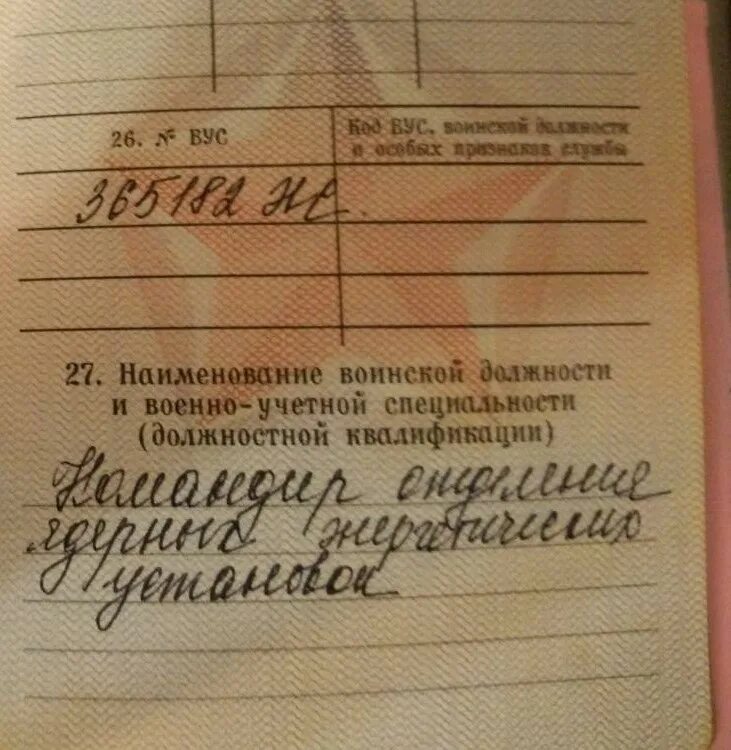 26. № ВУС
Код ВУС, воинской должности
и особых признаков службы
365182 НС.
27. Наименование воинской должности
и военно-учетной специальности
(должностной квалификации)
Командир отделения
ядерных энергетических
установок